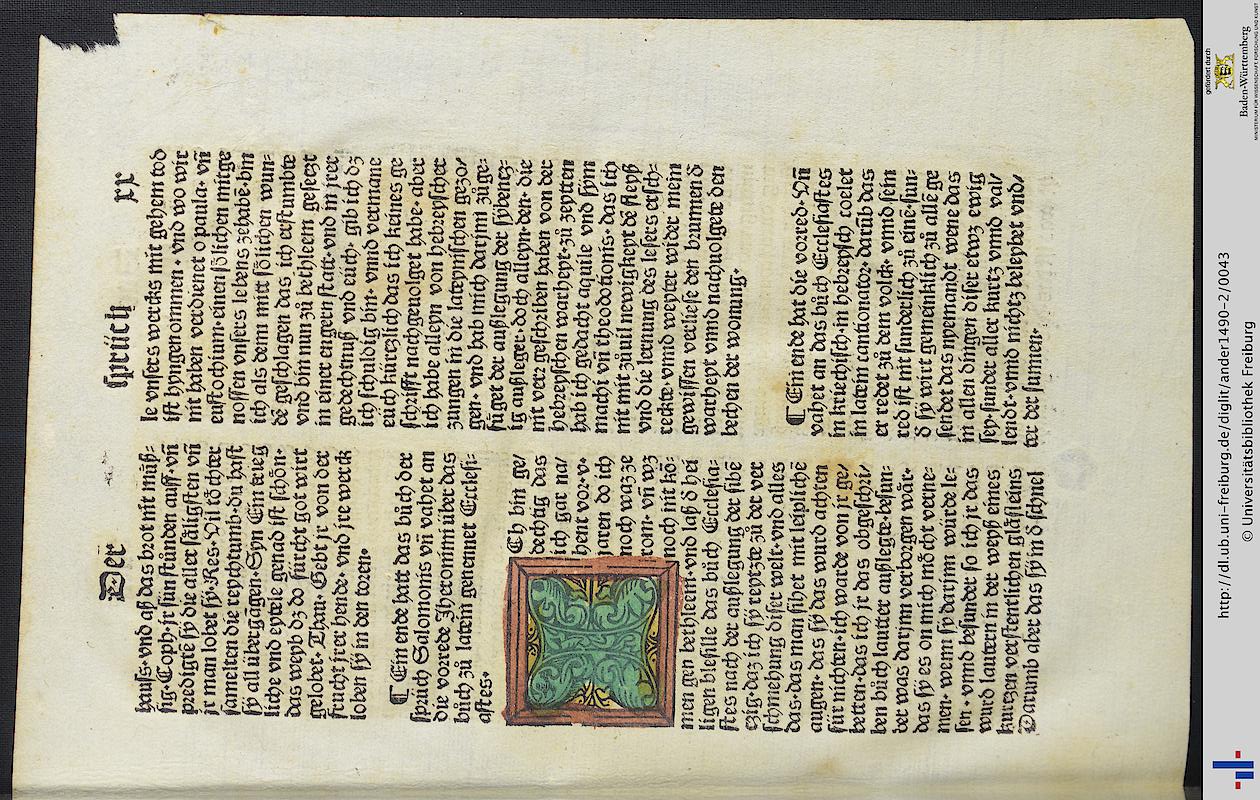 Der sprüch xx
hauſs· vnd aß das brot nit müſ-
ſig· Coph· jr ſun ſtůnden auff· vn̄
p̱edigtē ſy die aller ſäligſten vn̄
jr man lobet ſy· Res· Vil tôchter
ſamelten die reychtumb· du haſt
ſy all übergāgen· Syn Ein trieg
liche vnd eytele genad iſt ſchôn·
das weyb dz do fürcht got wirt
gelobet· Thau· Gebt jr von der
frucht jrer hende· vnd jre werck
loben ſy in den toren·
¶ Ein ende hatt das bůch der
ſprüch Salomonis vn̄ vahet an
die vorrede Jheronimi über das
bůch zů latein genennet Eccleſi-
aſtes·
Ch bin ge/
dechtig das
ich gar na/
hent vor· v·
iaren do ich
noch wazze
rom· vn̄ wz
noch nit kō-
men gen bethleem· vnd laß d̄ hei
ligen bleſille das bůch Eccleſia-
ſtes nach der auſlegung der ſibē
tzig· daz ich ſy reytzte zů der ver
ſchmehung diſer welt· vnd alles
das· das man ſihet mit leiplichē
augen· das ſy das wurd achten
für nichten· ich warde von jr ge/
betten· das ich jr das obgeſchri/
ben bůch lautter außlegte· beſun-
der was darjnn verborgen wär·
das ſy es on mich môcht verne-
men· wenn ſy darjnn würde le-
ſen· vnnd beſunder ſo ich jr das
wurd lautern in der weyß eines
kurtzen verſtentlichen gläſleins
Darumb aber das ſy in d̄ ſchnel
le vnſers wercks mit gehem tod
iſt hyngenommen· vnd wo wir
nit haben verdienet o paula· vn̄
euſtochium· einen ſôlichen mitge
noſſen vnſers lebens zehabē· bin
ich als denn mitt ſôlichen wun-
dē geſchlagen das ich erſtumbte
vnd bin nun zů bethleem geſetzt
in einer engern ſtatt· vnd in jrer
gedechtnuß vnd euch· gib ich dz
ich ſchuldig bin· vnnd vermane
euch kürtzlich das ich keines ge
ſchrifft nachgeuolget habe· aber
ich habe alleyn von hebreyſcher
zungen in die lateyniſchen gezo/
gen· vnd hab mich darjnn zůge-
fůget der außlegung der ſybentz-
ig außleger· doch alleyn· den· die
nit verr geſchriben haben von der
hebreyſchen warheyt· zů zeytten
hab ich gedacht aquile vnd ſym
machi vn̄ theodotionis· das ich
nit mit zůuil newigkeyt dē fleyß
vnd die lernung des leſers erſch-
reckte· vnnd weyter wider mein
gewiſſen verlieſe den brunnen d̄
warheyt vnnd nachuolgete den
bechen der wonung·
¶ Ein ende hat die vorred· Vn̄
vahet an das bůch Eccleſiaſtes
in kriechiſch· in hebreyſch coelet
in latein concionator· darūb das
er redet zů dem volk· vnnd ſein
red iſt nit ſunderlich zů einē· ſun-
d̄ ſy wirt gemeinklich zů allē ge
ſendet das nyemandt wene das
in allen dingen diſer etwz ewig
ſey ſunder aller kurtz vnnd val/
lendt· vnnd nichtz beleybet vnd/
ter der ſunnen·
http://dl.ub.uni-freiburg.de/diglit/ander1490-2/0043
© Universitätsbibliothek Freiburg
gefördert durch
Baden-Württemberg
MINISTERIUM FÜR WISSENSCHAFT, FORSCHUNG UND KUNST